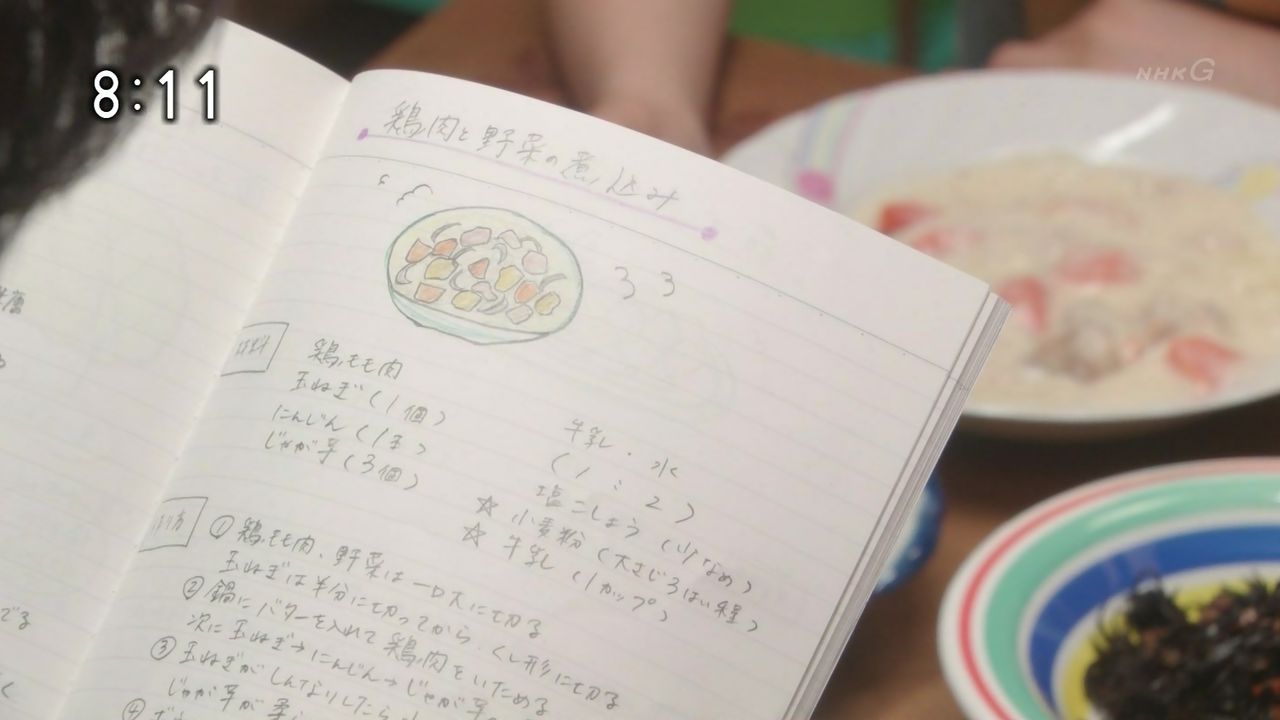 8:11
NHK G
鶏肉と野菜の煮込み
材料
鶏もも肉
玉ねぎ(1個)
にんじん(1本)
じゃが芋(3個)
牛乳・水
(1:2)
塩こしょう(少なめ)
☆小麦粉(大さじ3ばい程)
☆牛乳(1カップ)
作り方
①鶏もも肉、野菜は一口大に切る
玉ねぎは半分に切ってから、くし形に切る
②鍋にバターを入れて鶏肉をいためる
次に玉ねぎ→にんじん→じゃが芋の
③玉ねぎがしんなりしたら
じゃが芋が柔ら
④